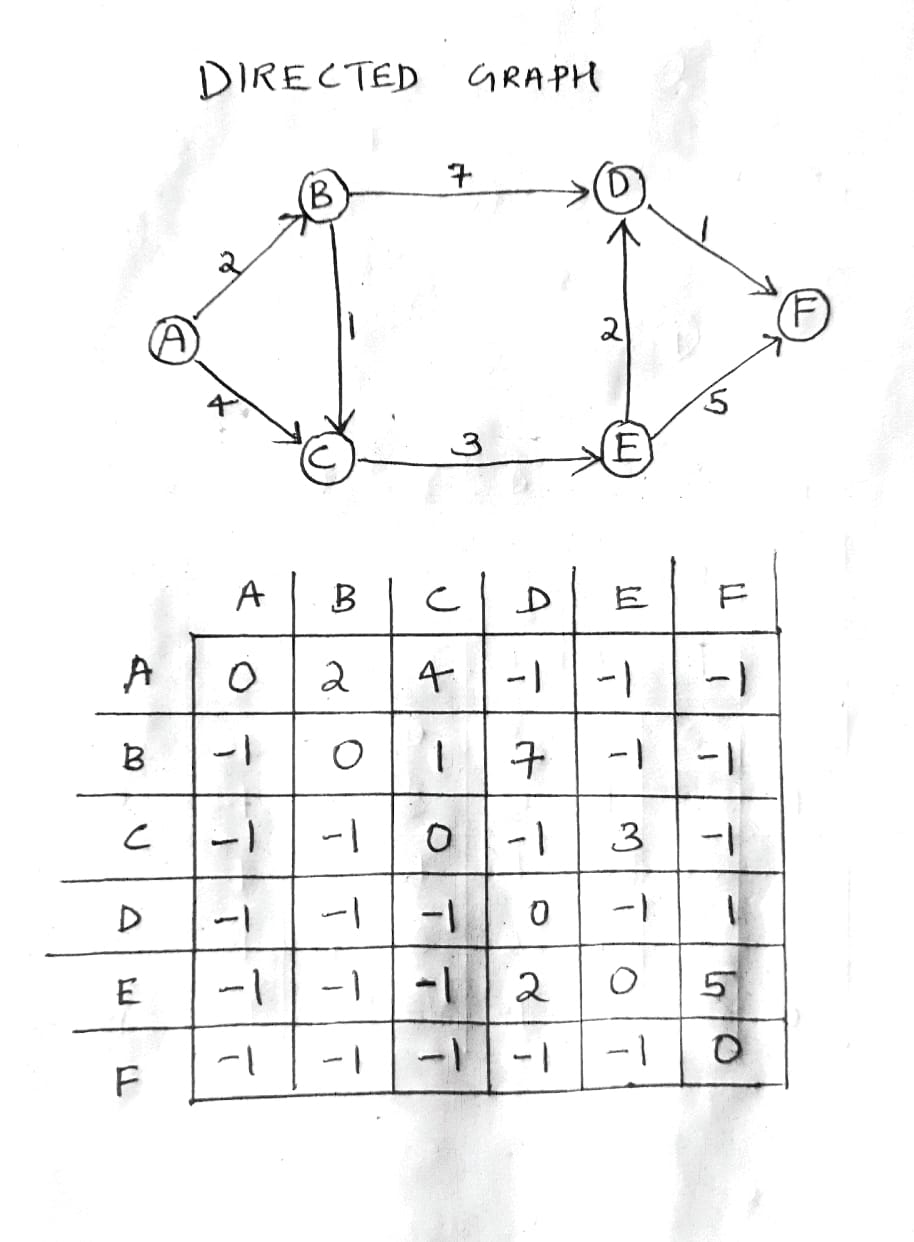 DIRECTED GRAPH
B 7 D
2 1
A 1 2 F
4 5
C 3 E
A B C D E F
A 0 2 4 -1 -1 -1
B -1 0 1 7 -1 -1
C -1 -1 0 -1 3 -1
D -1 -1 -1 0 -1 1
E -1 -1 -1 2 0 5
F -1 -1 -1 -1 -1 0